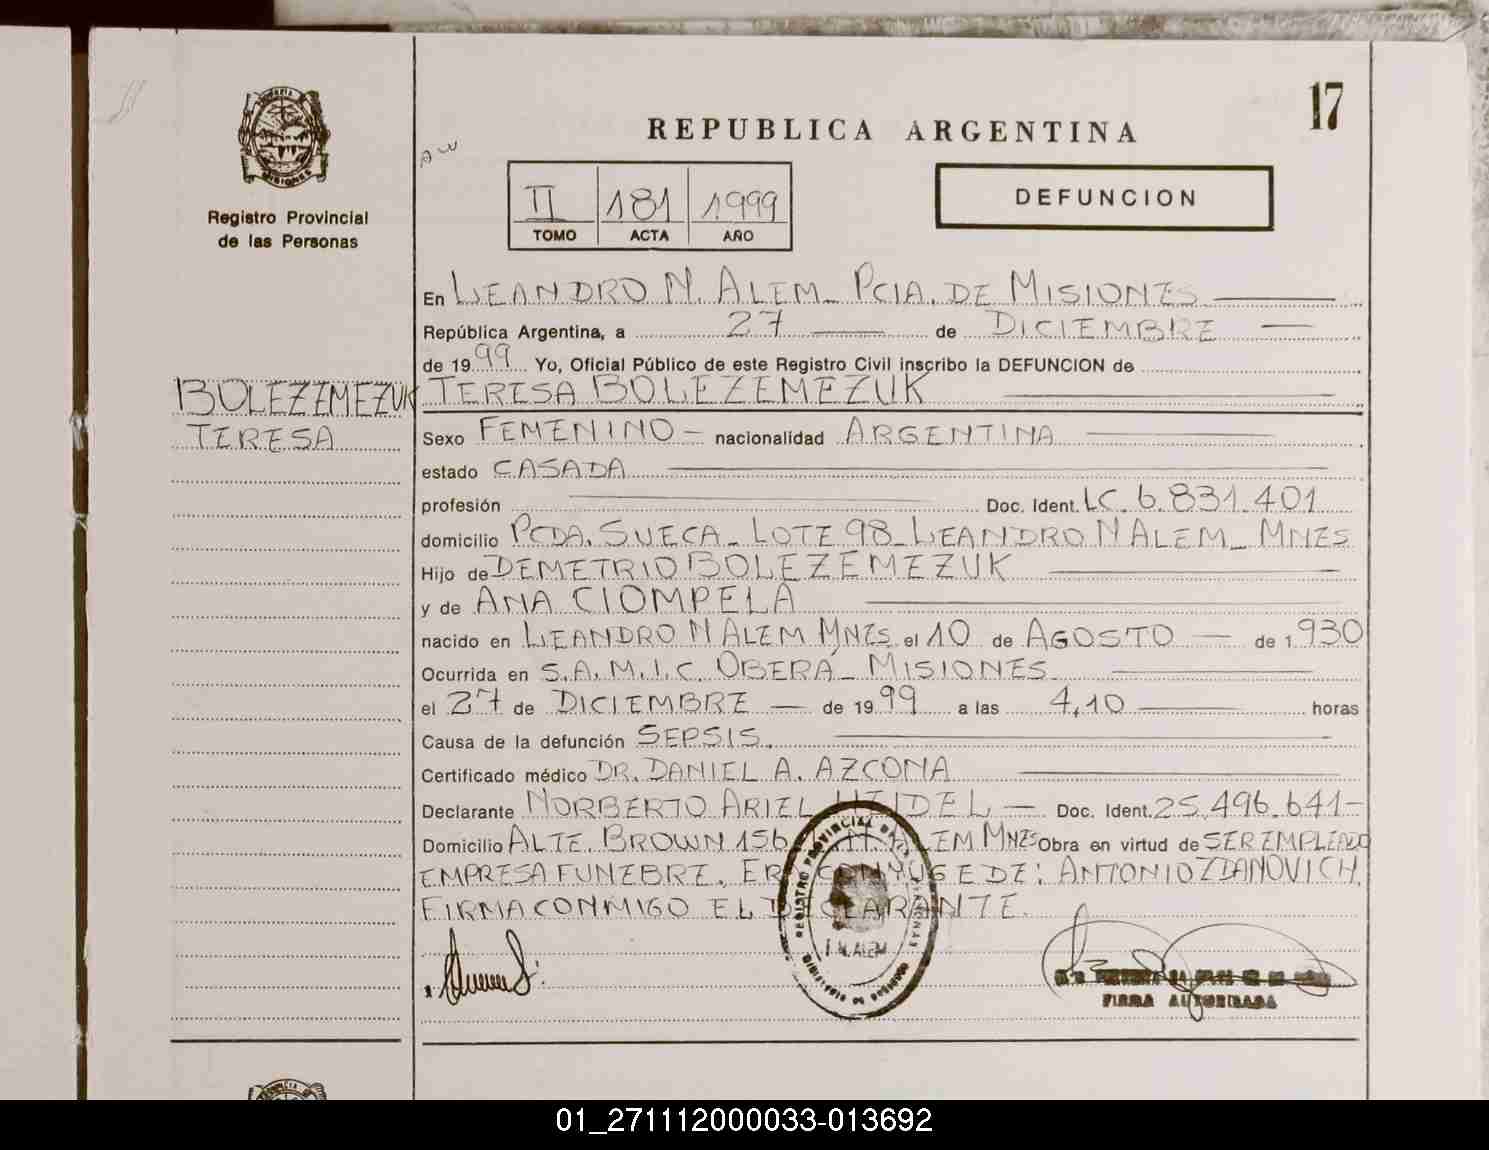 17
REPUBLICA ARGENTINA
DEFUNCION
PROVINCIA DE
MISIONES
Registro Provincial
de las Personas
II 181 1999
TOMO ACTA AÑO
En LEANDRO N. ALEM_ PCIA. DE MISIONES
República Argentina, a 27 de DICIEMBRE
de 1999 Yo, Oficial Público de este Registro Civil inscribo la DEFUNCION de
BOLEZEMEZUK
TERESA
TERESA BOLEZEMEZUK
Sexo FEMENINO - nacionalidad ARGENTINA
estado CASADA
profesión Doc. Ident. LC. 6.831.401
domicilio PCDA. SUECA_ LOTE 98_LEANDRO N ALEM_ MNES
Hijo de DEMETRIO BOLEZEMEZUK
y de ANA CIOMPELA
nacido en LEANDRO N ALEM MNES. el 10 de AGOSTO de 1.930
Ocurrida en S.A.M.I.C. OBERÁ_ MISIONES
el 27 de DICIEMBRE de 1999 a las 4,10 horas
Causa de la defunción SEPSIS.
Certificado médico DR. DANIEL A. AZCONA
Declarante NORBERTO ARIEL HEIDEL Doc. Ident. 25.496.641-
Domicilio ALTE. BROWN 156 ALEM MNES Obra en virtud de SER EMPLEADO
EMPRESA FUNEBRE. ERA CONYUGE DE: ANTONIO ZDANOVICH.
FIRMA CONMIGO EL DECLARANTE.
REGISTRO PROVINCIAL DE LAS PERSONAS
L.N. ALEM
FIRMA AUTORIZADA
01_271112000033-013692